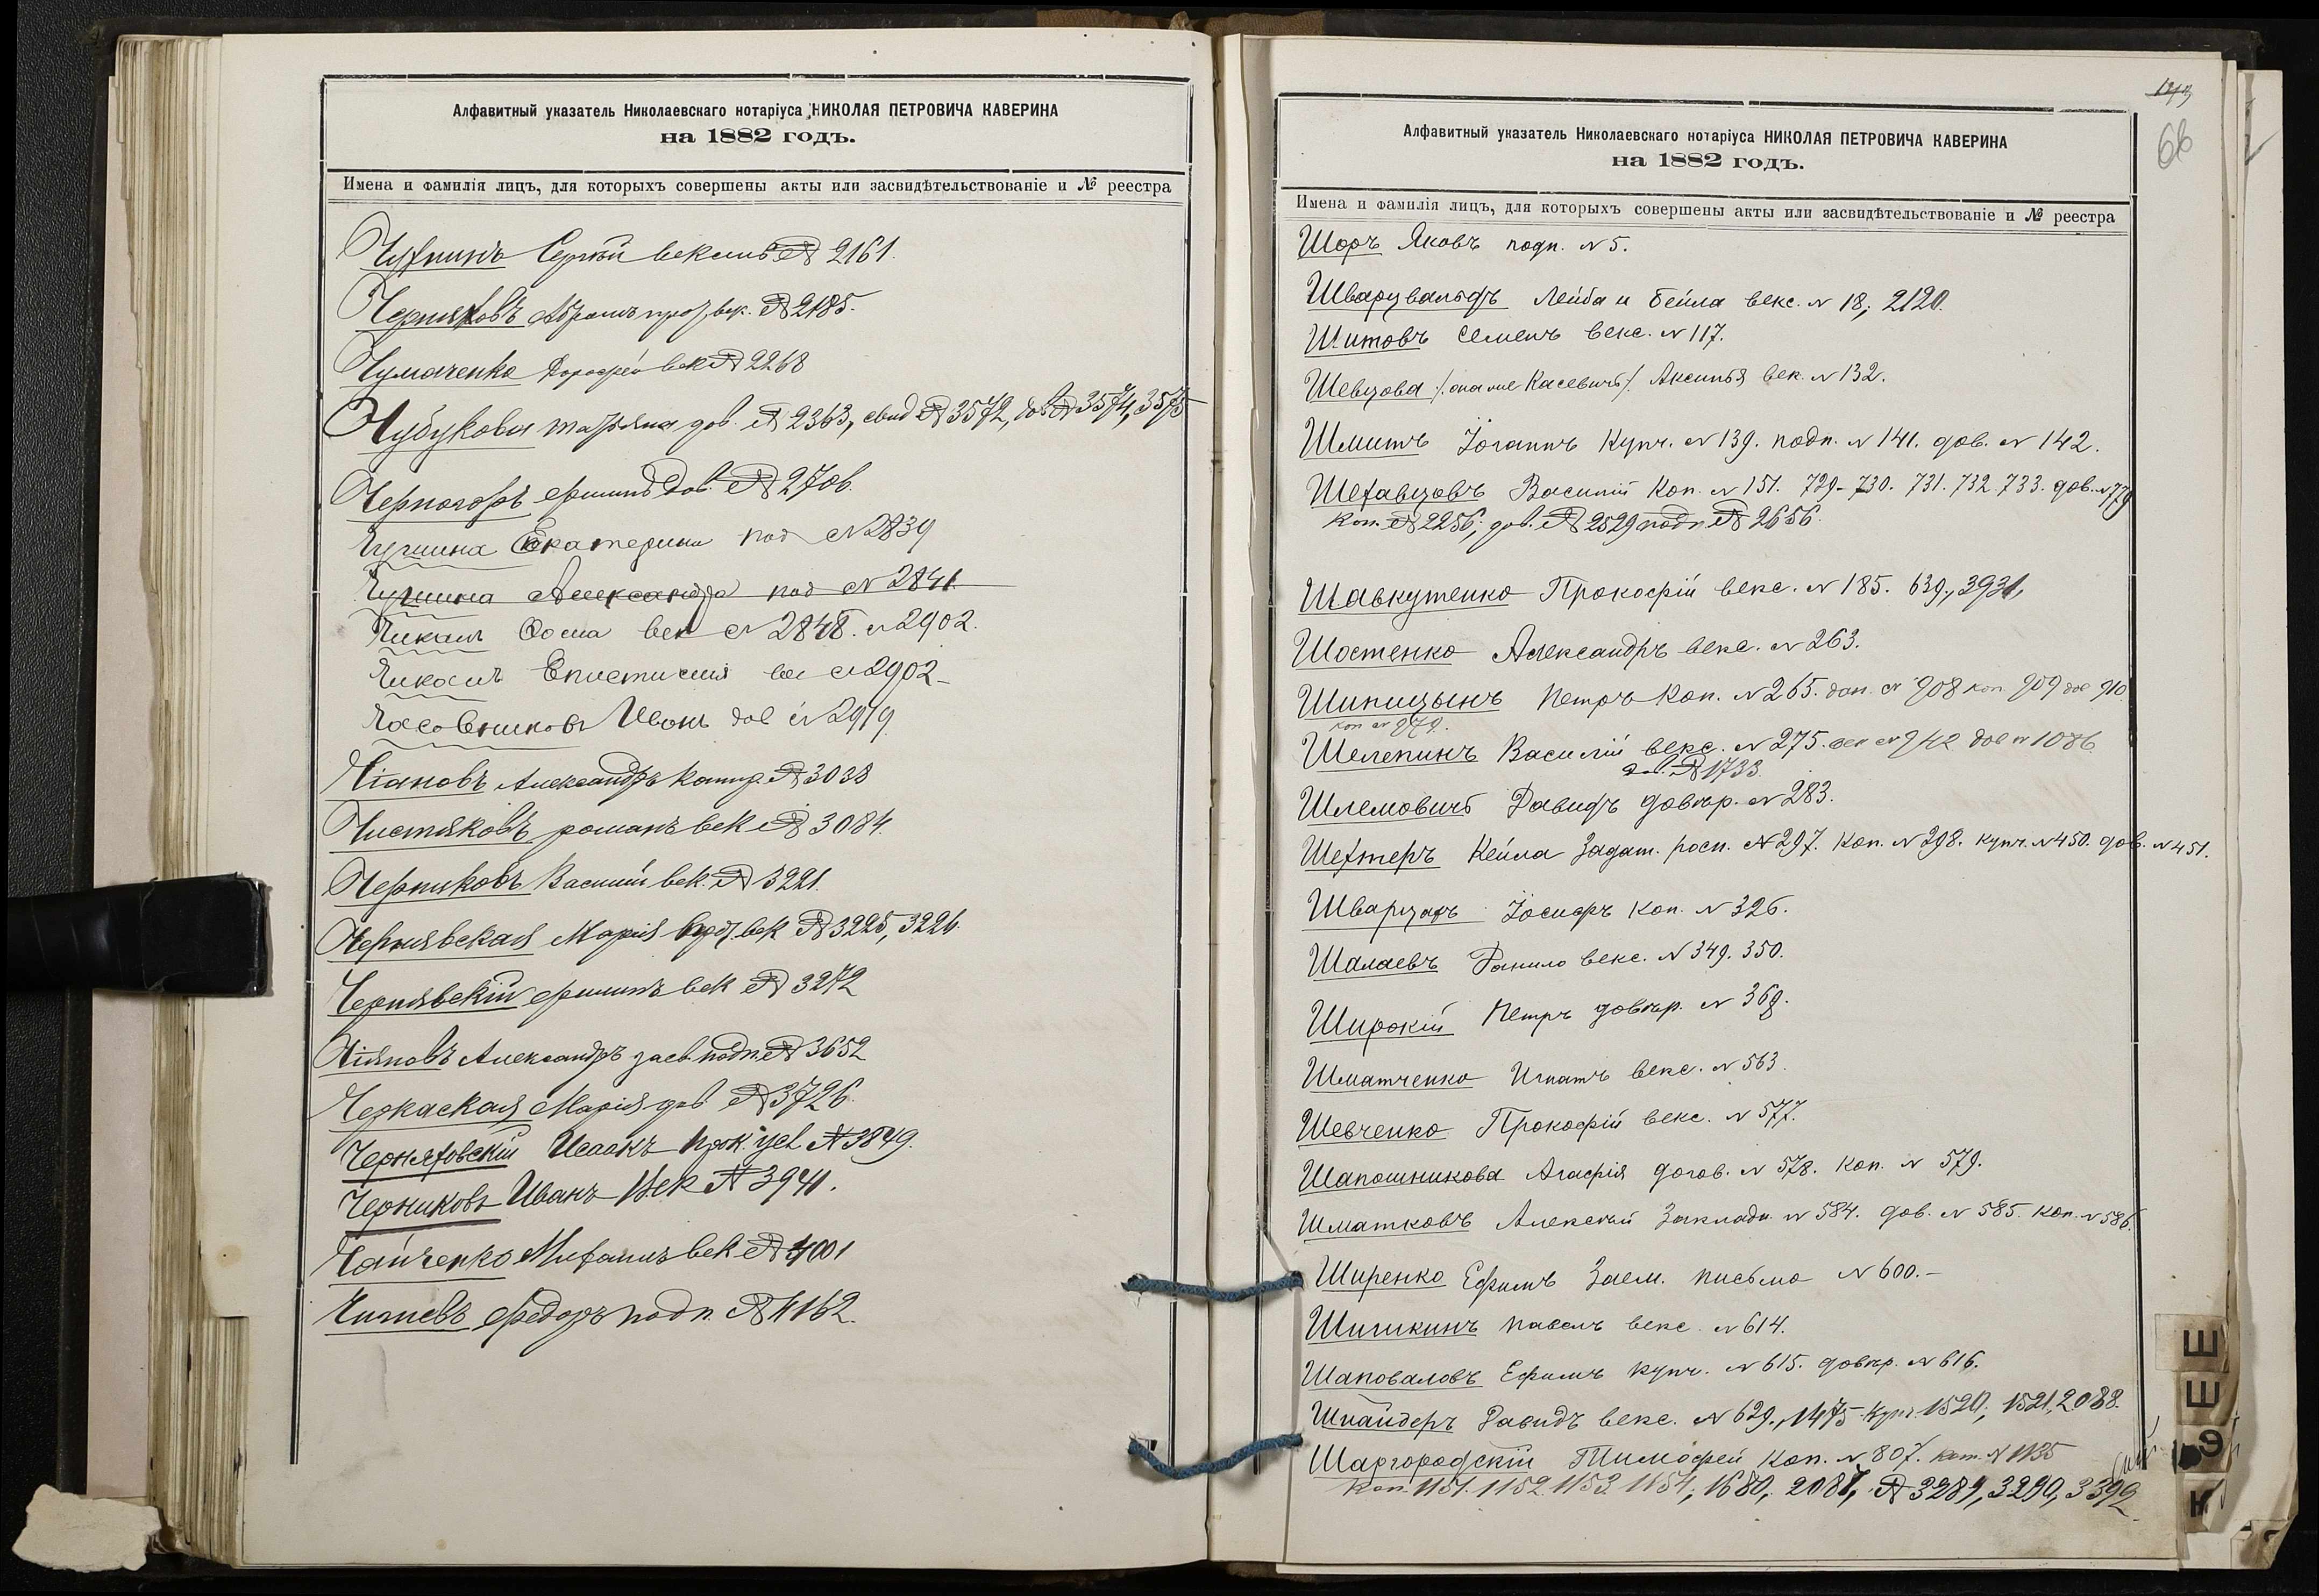 Алфавитный указатель Николаевскаго нотаріуса НИКОЛАЯ ПЕТРОВИЧА КАВЕРИНА
на 1882 годъ.
Имена и фамилія лицъ, для которыхъ совершены акты или засвидѣтельствованіе и № реестра
Сергѣй вексель № 2161.
Черняковъ Абрамъ прот. век. № 2185.
Чумаченко Дорофей век № 2268
Чубукова татьяна дов. № 2363, свид № 3572, дов № 3574, 3575
Черногоръ филипъ дов. № 2706.
Екатерина под № 2839
Александра под № 2841
Чикалъ Фома век № 2848. № 2902.
Чикалъ Епистимія век № 2902-
Часовниковъ Иванъ дов № 2919
Чіановъ Александръ № 3038
Чистяковъ романъ век № 3084.
Черниковъ Василій век. № 3221.
Чернявская Марія прот. век № 3225, 3226.
Чернявскій филипъ век № 3272
Чіяновъ Александръ засв. подп. № 3652
Черкаская Марія дов № 3726.
Черняховскій Исаакъ № 3849.
Черниковъ Иванъ Век № 3941.
Чайченко Михаилъ век № 4001
Федоръ подп. № 4162.
66
Алфавитный указатель Николаевскаго нотаріуса НИКОЛАЯ ПЕТРОВИЧА КАВЕРИНА
на 1882 годъ.
Имена и фамилія лицъ, для которыхъ совершены акты или засвидѣтельствованіе и № реестра
Шоръ Яковъ подп. № 5.
Шварцвальдъ Лейба и Бейла векс. № 18; 2120.
Шитовъ Семенъ векс. № 117.
Шевцова /: она же Касевичъ :/ Аксинья век. № 132.
Шмитъ Іоганнъ Купч. № 139. подп. № 141. дов. № 142.
Шехавцовъ Василій Коп. № 151. 729- 730. 731. 732. 733. дов. № 779
Коп. № 2256; дов. № 2529 подп № 2656.
Шавкутенко Прокофій векс. № 185. 639., 3931,
Шостенко Александръ векс. № 263.
Шипицынъ Петръ Коп. № 265. дан. № 908 коп. 909 дов 910
коп № 979.
Шелепинъ Василій векс. № 275. век № 942 дов № 1086
дов. № 1733.
Шлемовичъ Давидъ довѣр. № 283.
Шехтеръ Кейла Задат. росп. № 297. Коп. № 298. купч. № 450. дов. № 451.
Шварцапъ Іосифъ Коп. № 326.
Шалаевъ Данило векс. № 349. 350.
Широкій Петръ довѣр. № 369.
Шматченко Игнатъ векс. № 563.
Шевченко Прокофій векс. № 577.
Шапошникова Агафія догов. № 578. Коп. № 579.
Шматковъ Алексѣй Закладн. № 584. дов. № 585. Коп. № 586.
Ширенко Ефимъ Заем. письмо № 600.-
Шишкинъ Павелъ векс. № 614.
Шаповаловъ Ефимъ купч. № 615. довѣр. № 616.
Шнайдеръ Давидъ векс. № 629., 1475 купч. 1520, 1521, 2088.
Шаргородскій Тимофей Коп. № 807. № 1135
Коп. 1151. 1152. 1153 1154, 1680, 2087, № 3289, 3290, 3392
Ш
Ш
Э